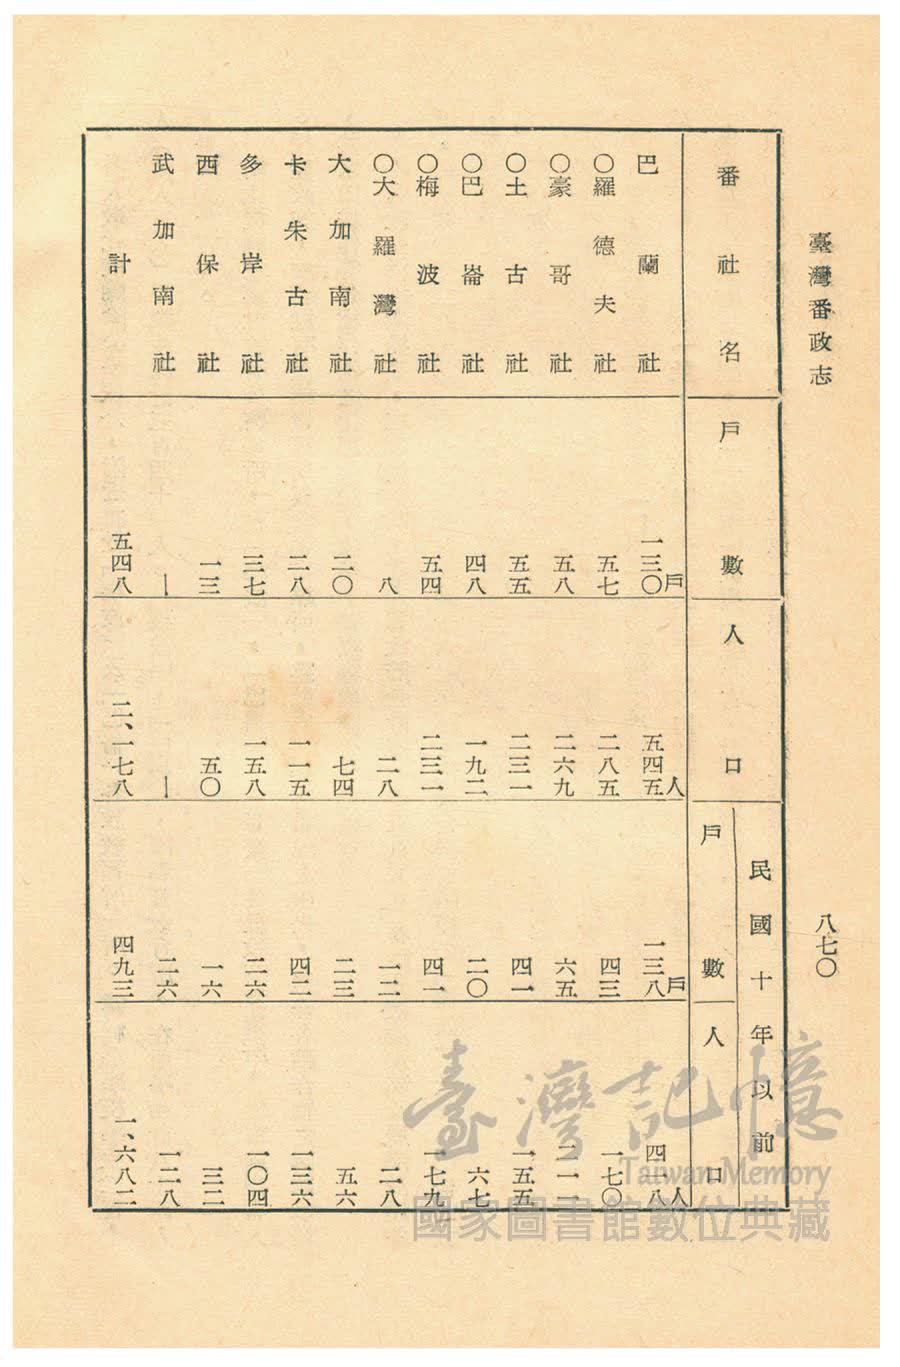 臺灣番政志 八七〇
番社名 戶數 人口 民國十年以前 戶數 人口
巴蘭社 一三〇戶 五四五人 一三八戶 四一八人
〇羅德夫社 五七 二八五 四三 一七〇
〇豪哥社 五八 二六九 六五
〇土古社 五五 二三一 四一 一五五
〇巴崙社 四八 一九二 二〇 六七
〇梅波社 五四 二三一 四一 一七九
〇大羅灣社 八 二八 一二 二八
大加南社 二〇 七四 二三 五六
卡朱古社 二八 一一五 四二 一三六
多岸社 三七 一五八 二六 一〇四
西保社 一三 五〇 一六 三二
武加南社 — — 二六 一二八
計 五四八 二、一七八 四九三 一、六八二
臺灣記憶
Taiwan Memory
國家圖書館數位典藏